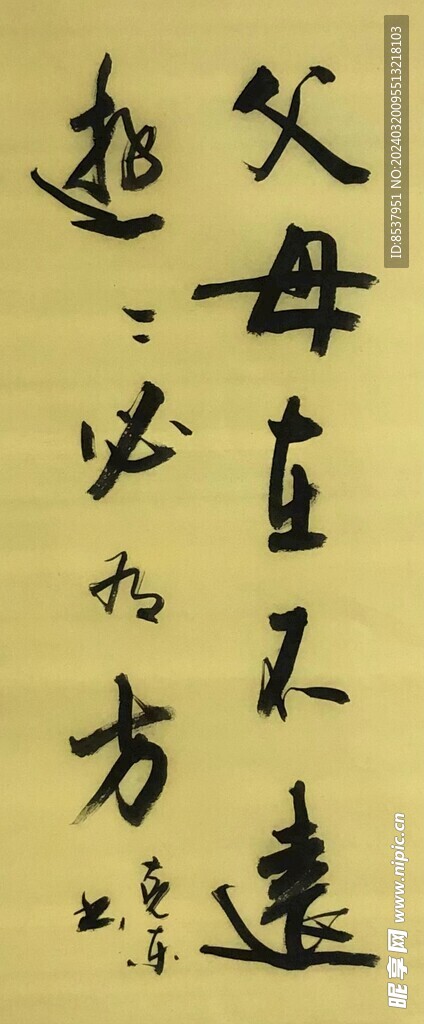 父母在不遠
遊〻必有方
克东
书
ID:8537951 NO:20240320095513218103
昵享网 www.nipic.cn